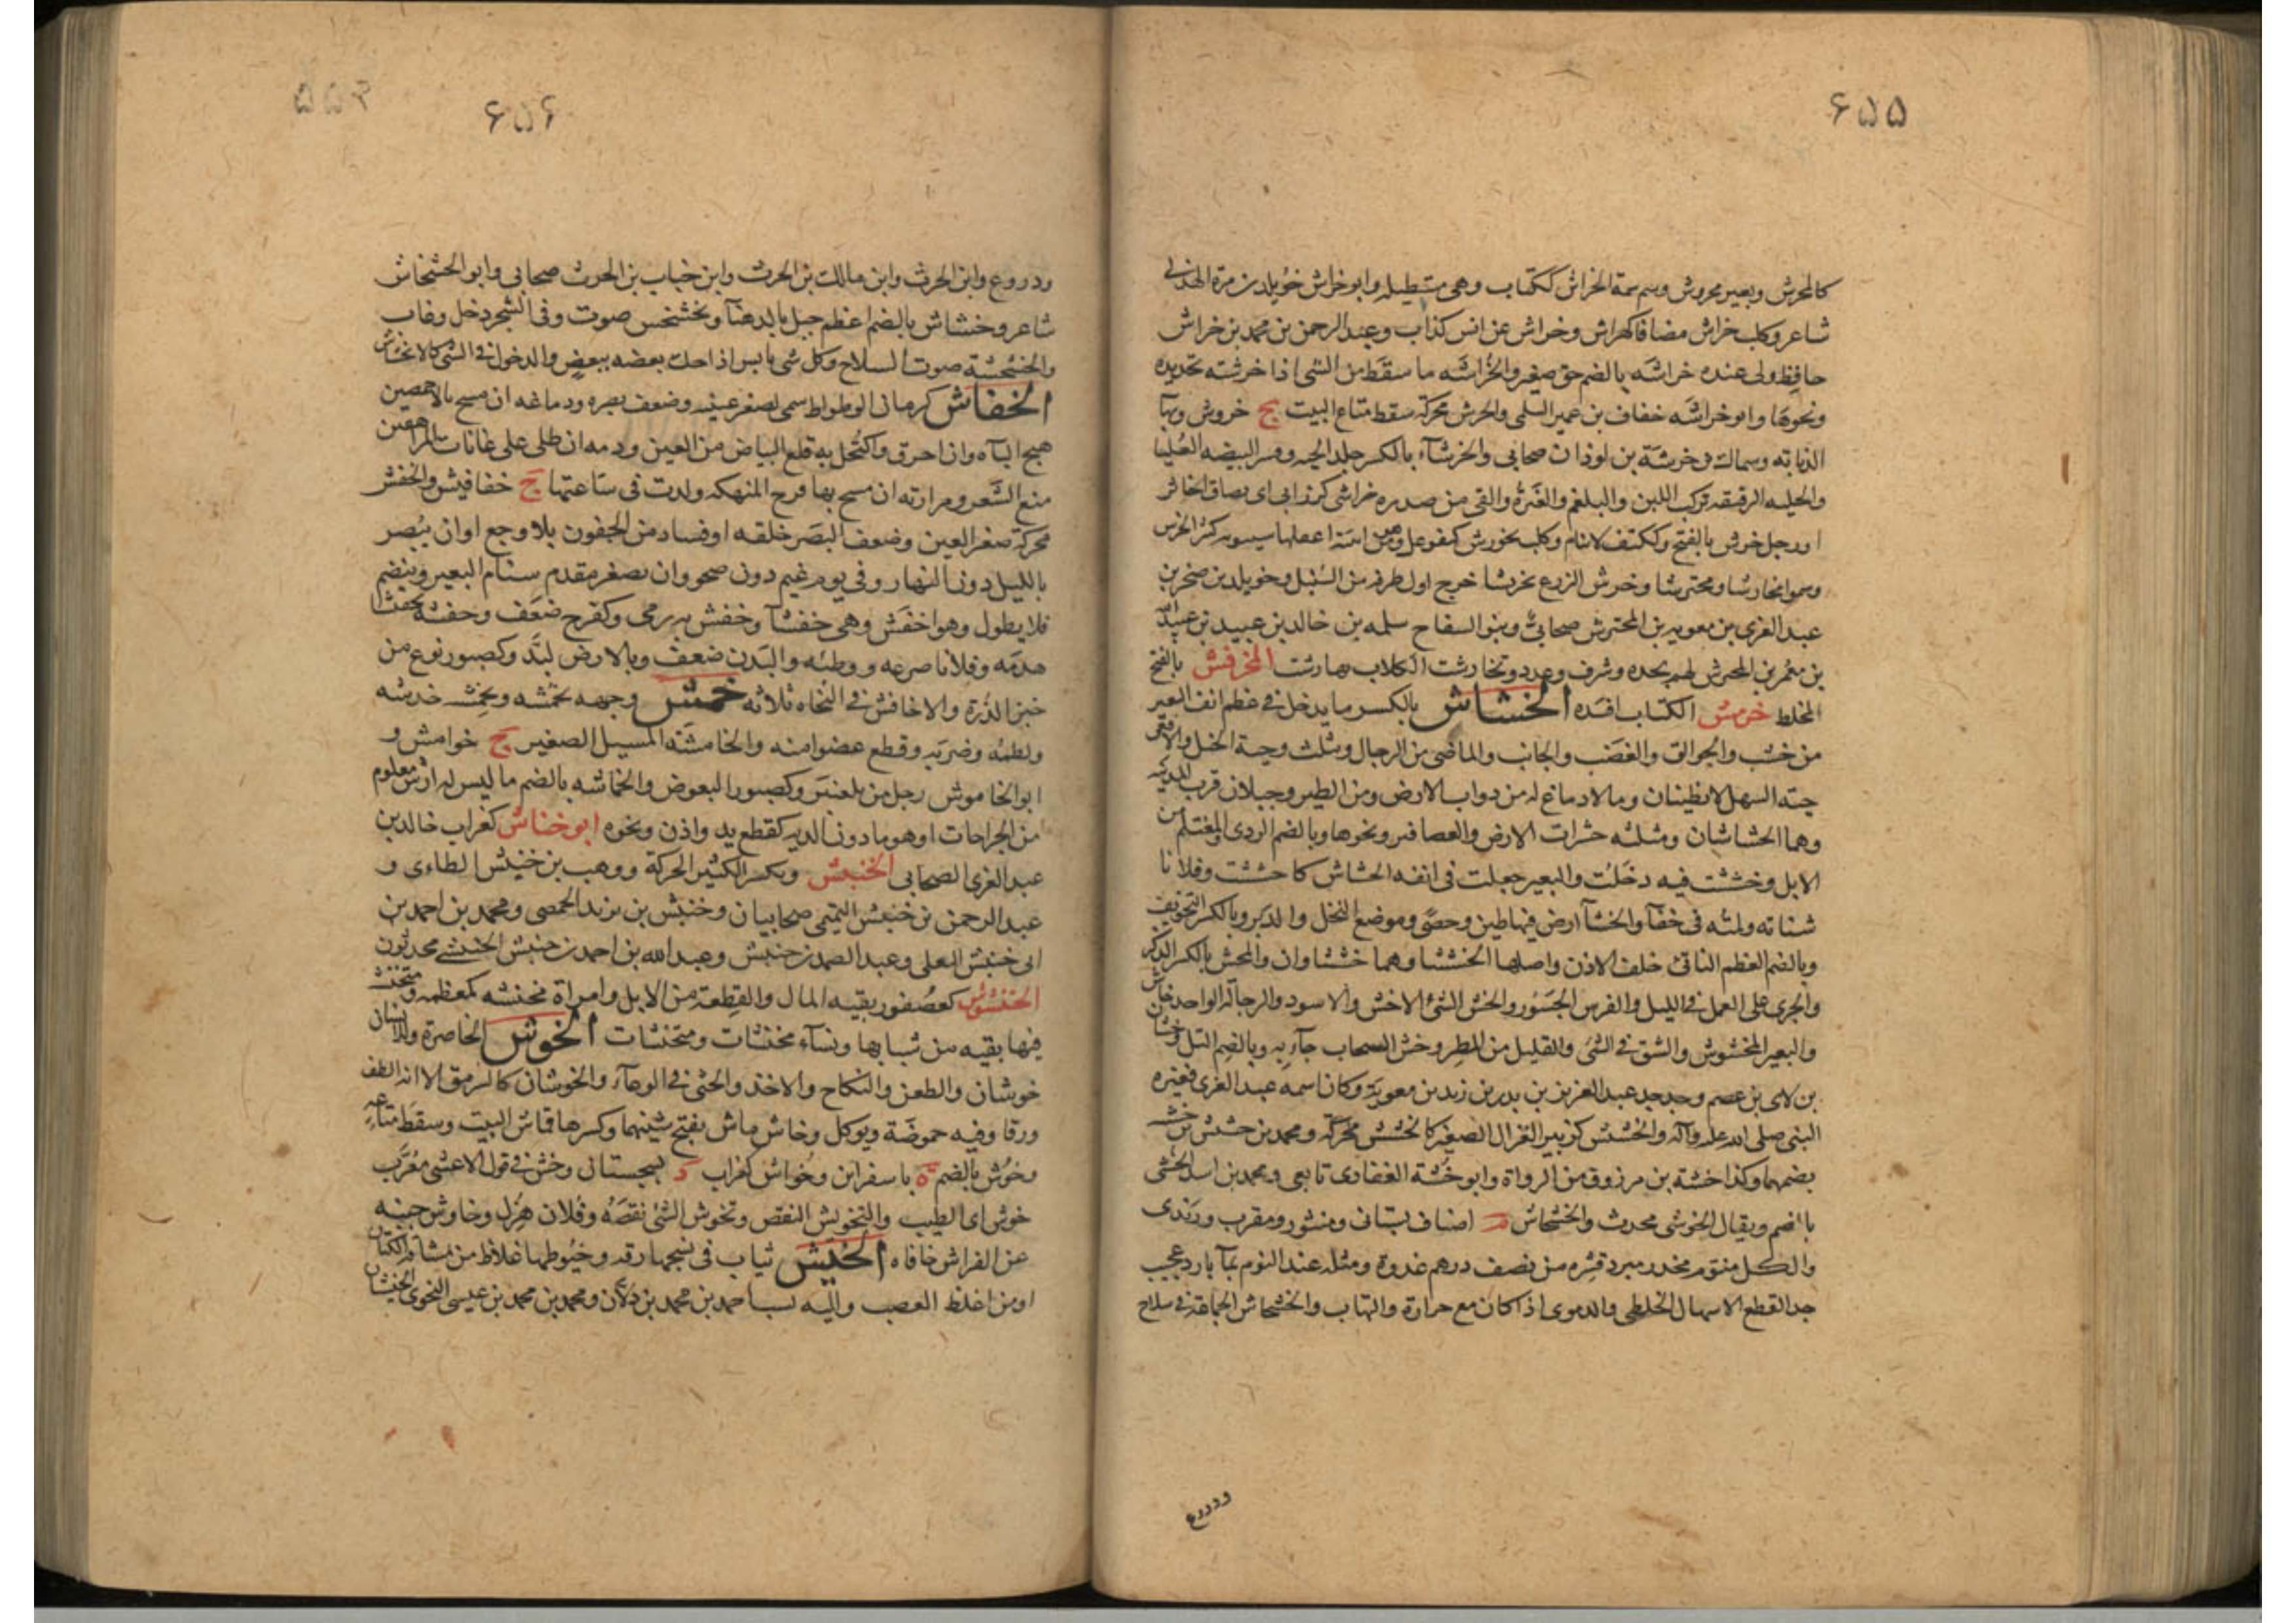 ۶۵۵
كالمخرش وبعير مخروش وسم سمة الخراش ككتاب وهى مستطيلة وابو خراش خويلد بن مرة الهذلى
شاعر وكلب خراش مضافا كهراش وخراش عن انس كذاب وعبد الرحمن بن محمد بن خراش
حافظ ولى عنده خراشة بالضم حق صغير والخراشه ما سقط من الشى اذا خرشته بحديده
ونحوها وابو خراشه خفاف بن عمير السلمى والخرش محركة سقط متاع البيت ج خروش وبهآ
الذبابه وسماك بن خرشة بن لوذان صحابى والخرشآء بالكسر جلد الحيه وقشر البيضه العليا
والجليه الرقيقة تركب اللبن والبلغم والغبرة والقى من صدره خراشى كزرابى اى بصاقا خاثر
ا ورجل خرش بالفتح وككتف لا ينام وكلب نخورش كنفوعل وهو من ابنية اغفلها سيبويه كثير الخرش
وسموا مخارشا ومخترشا وخرش الزرع تخريشا خرج اول طرفه من السنبل وخويلد بن صخر بن
عبد العزى بن معويه بن المخترش صحابى وبنو السفاح سلمه بن خالد بن عبيد بن عبد الله
بن معمر بن المخترش لهم نجده وشرف وعدد وتخارشت الكلاب تهارشت المخرفش بالفتح
المخلط خرمش الكتاب افسده الخشاش بالكسر ما يدخل فى عظم انف البعير
من خشب والجوالق والغضب والجانب والماضى من الرجال ومثلث وحية الجبل والافعى
حية السهل لا تطنيان وما لا دماغ له من دواب الارض ومن الطير وجبلان قرب المدينه
وهما الخشاشان ومثلثه حشرات الارض والعصافير ونحوها وبالضم الردى والمغتلم من
الابل وخششت فيه دخلت والبعير جعلت فى انفه الخشاش كاخششت وفلانا
شناته ولمته فى خفآ والخشآ ارض فيها طين وحصى وموضع النخل والدبر وبالكسر التخويف
وبالضم العظم الناتى خلف الاذن واصلها الخششا وهما خششاوان والمخش بالكسر الذكر
والجرى على العمل فى الليل والفرس الجسور والخش الشئ الاخش والاسود والرجالة الواحد خاش
والبعير المخشوش والشق فى الشى والقليل من المطر وخش السحاب جآء به وبالضم التل وخشا
بن لاى بن عصم وجد جد عبد العزيز بن بدر بن زيد بن معوية وكان اسمه عبد العزى فغيره
النبى صلى الله عليه وآله والخشش كزبير الغزال الصغير كالخشش محركة ومحمد بن خشش بن خشه
بضمهما وكذا خشة بن مرزوق من الرواة وابو خشة الغفارى تابعى ومحمد بن اسد الخشى
بالضم ويقال الخوشى محدث والخشخاش م اصناف بستانى ومنثور ومقرن وزبدى
والكل منوم مخدر مبرد قشره من نصف درهم غدوة ومثله عند النوم بمآ بارد عجيب
جدا لقطع الاسهال الخلطى والدموى اذا كان مع حرارة والتهاب والخشخاش الجماعة فى سلاح
ودروع
۶۵۶
۵۵۲
ودروع وابن الحرث وابن مالك بن الحرث وابن خباب بن الحرث صحابى وابو الخشخاش
شاعر وخشاش بالضم اعظم جبل بالدهنآ وتخشخش صوت وفى الشجر دخل وغاب
والخشخشة صوت السلاح وكل شى يابس اذا حك بعضه ببعض والدخول فى الشى كالانخشاش
الخفاش كرمان الوطواط سمى لصغر عينيه وضعف بصره ودماغه ان مسح بالاخمصين
هيج الباه وان احرق واكتحل به قلع البياض من العين ودمه ان طلى على غانات المراهقين
منع الشعر ومرارته ان مسح بها فرج المنهكه ولدت فى ساعتها ج خفافيش والخفش
محركة صغر العين وضعف البصر خلقه او فساد من الجفون بلا وجع او ان يبصر
بالليل دون النهار وفى يوم غيم دون صحو وان يصغر مقدم سنام البعير وينضم
فلا يطول وهو اخفش وهى خفشآ وخفش به رمى وكفرح ضعف وخفشه تخفشا
هدمه وفلانا صرعه ووطئه والبدن ضعف وبالارض لبد وكصبور نوع من
خبز الذرة والاخافش فى النحاه ثلاثه خمش وجهه يخمشه ويخمش خدشه
ولطمه وضربه وقطع عضوا منه والخامشة المسيل الصغير ج خوامش و
ابو الخاموش رجل من بلعنبر وكصبور البعوض والخماشه بالضم ما ليس له ارش معلوم
من الجراحات او هو ما دون الديه كقطع يد واذن ونحوه ابو خناش كغراب خالد بن
عبد العزى الصحابى الخنبش ويكسر الكثير الحركة ووهب بن خنبش الطاءى و
عبد الرحمن بن خنبش التيمى صحابيان وخنبش بن يزيد الحمصى ومحمد بن احمد بن
ابى خنبش البعلى وعبد الصمد بن خنبش وعبد الله بن احمد بن خنبش الخنبشى محدثون
الخنشوش كعصفور بقيه المال والقطعة من الابل وامراة مخنشه كمعظمه ومتخنشه
فيها بقيه من شبابها ونسآء مخنشات ومتخنشات الخوش الخاصرة وللانسان
خوشان والطعن والنكاح والاخذ والحثى فى الوعآء والخوشان كالسرمق الا انه الطف
ورقا وفيه حموضة ويوكل وخاش ماش بفتح شينهما وكسرها قماش البيت وسقط متاعه
وخوش بالضم ة باسفراين وخواش كغراب د بسجستان وخش فى قول الاعشى معرب
خوش اى الطيب والتخويش النقص وتخوش الشئ نقصه وفلان هزل وخاوش جنبه
عن الفراش خافاه الخيش ثياب فى نسجها رقه وخيوطها غلاظ من مشاقة الكتان
او من اغلظ العصب واليه نسب احمد بن محمد بن دلان ومحمد بن محمد بن عيسى النحوى الخيشان